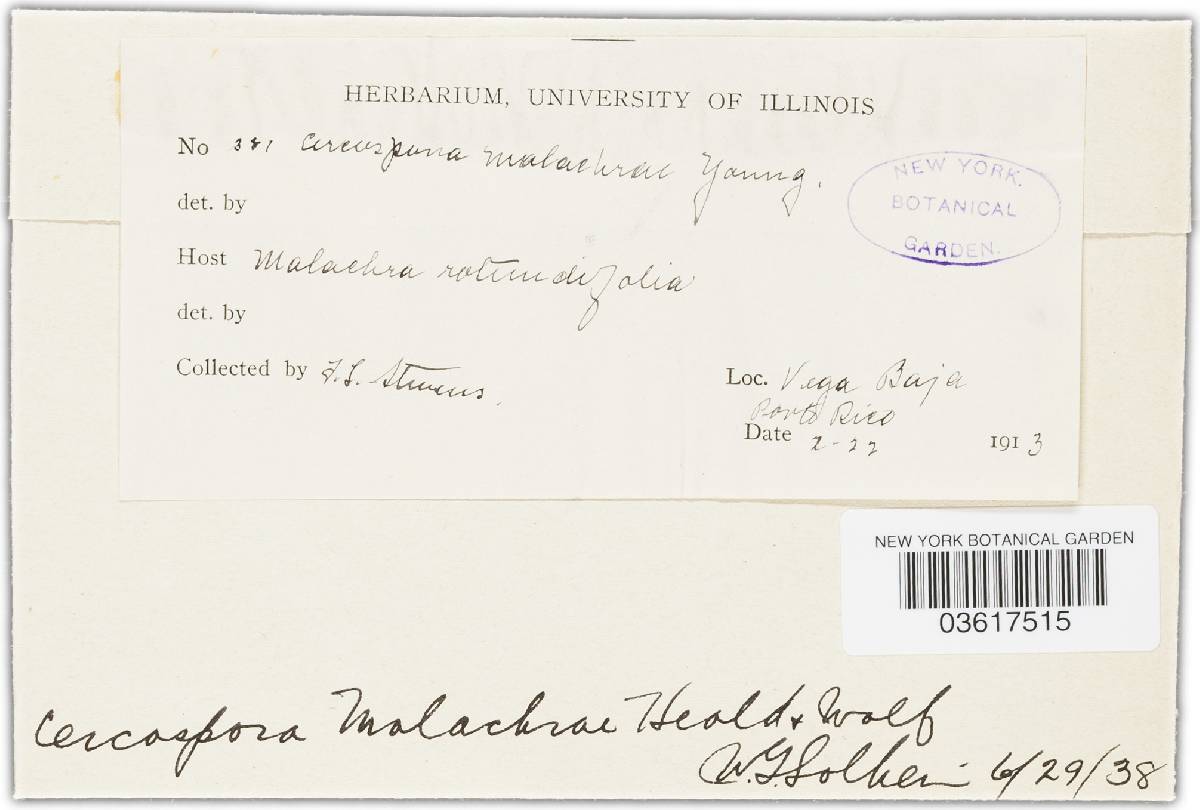 HERBARIUM, UNIVERSITY OF ILLINOIS
No 381 Cercospora malachrae Young.
det. by
Host Malachra rotundifolia
det. by
Collected by F.L. Stevens.
Loc. Vega Baja
Porto Rico
Date 2-22 1913
NEW YORK.
BOTANICAL
GARDEN.
NEW YORK BOTANICAL GARDEN
03617515
Cercospora Malachrae Heald & Wolf
W.G. Solheim 6/29/38